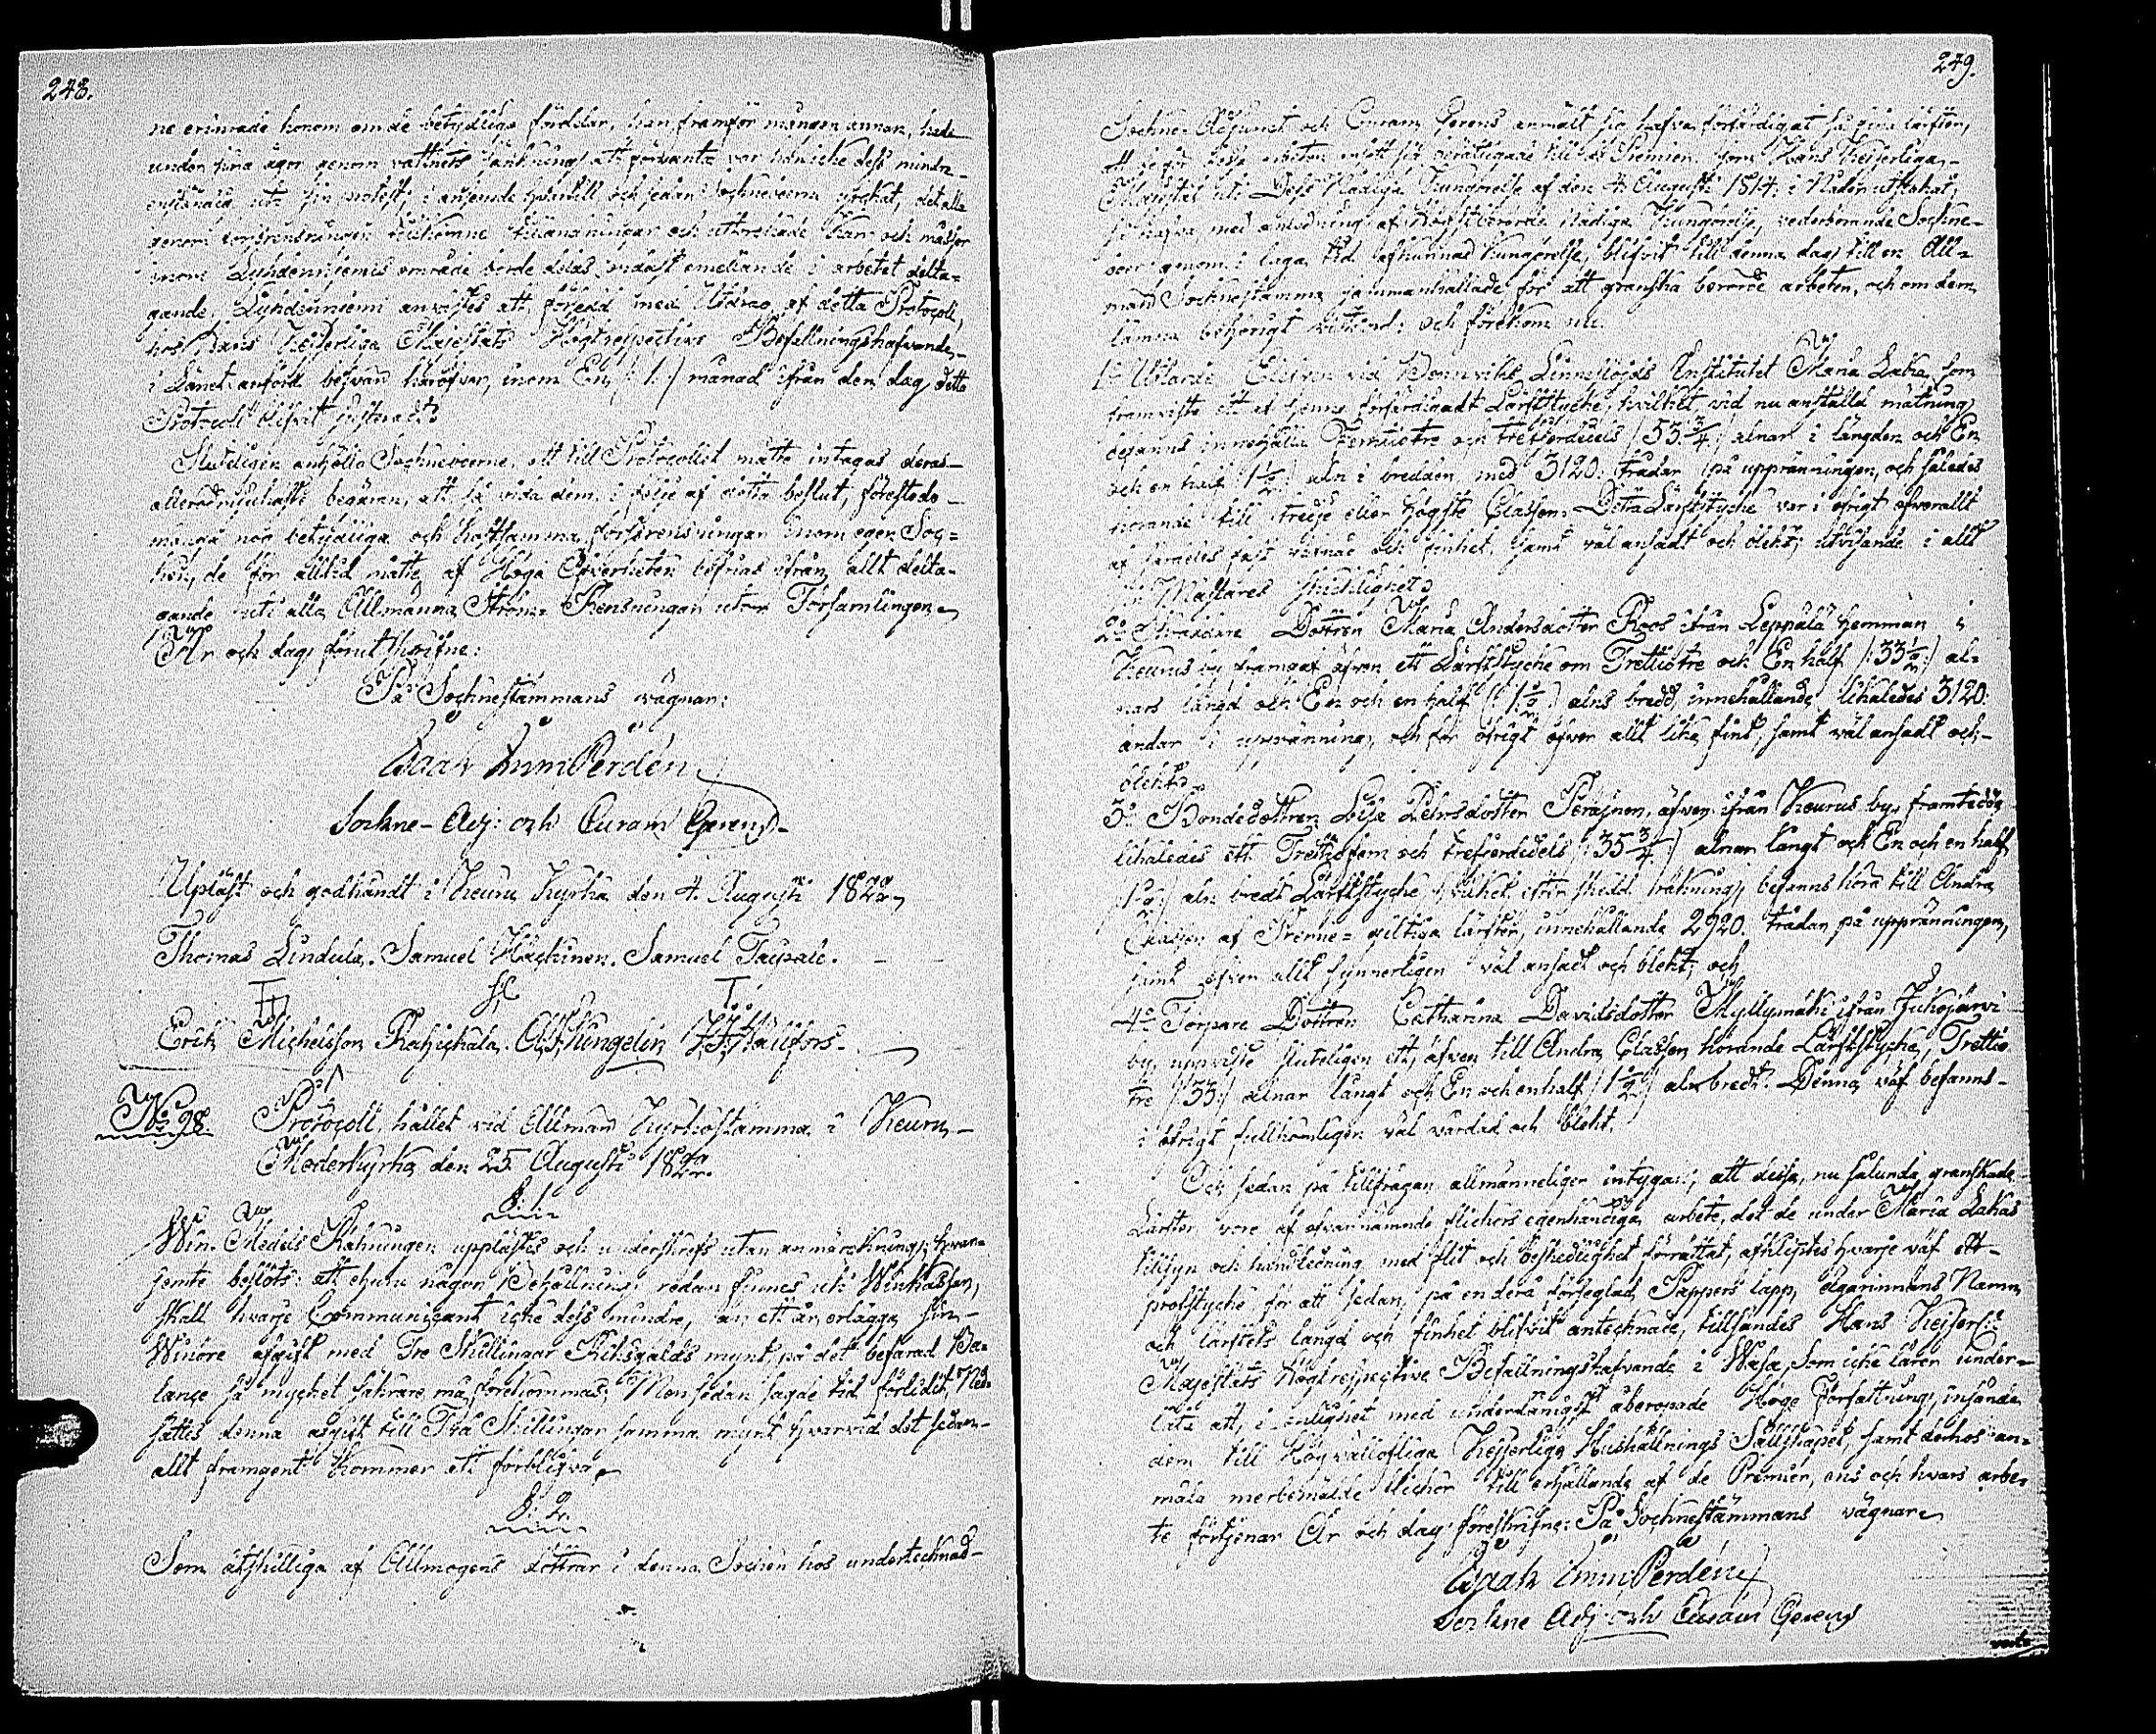 248.
ne erinrade honom om de betydliga fördelar, han framför mången annan, hade
under sina ägor genom vattnets sänkning att förvänta var han icke dess mindre
enständig uti sin protest; i anseende hvartill och sedan Sochneboerne yrckat, det alla
genom forsrensningen tillkomne tillandningar och uttorckade Kärr och måssor
inom Lyhdenniemis område borde delas endast emellan de i arbetet delta-
gande. Lyhdenniemi anvistes att, försedd med Utdrag af detta Protocoll,
hos Hans Kejserliga Majestäts Högtrespective Befallningshafvande
i Länet anföra besvär häröfver, inom En /:1:/ månad ifrån den dag detta
Protocoll blifvit justeradt.
Sluteligen anhöllo Sochneboerne, att till Protocollet måtte intagas deras
allerödmjukaste begäran, att så vida dem, i följe af detta beslut, förestodo
många nog betydliga och kostsamma forsrensningar inom egen Soc-
ken, de för alltid måtte af Höga Öfverheten befrias ifrån allt delta-
gande uti alla Allmänna Ström-Rensningar utom Församlingen.
År och dag förutskrifne:
På Sochnestämmans vägnar:
Isaak Imm Perdén
Sochne-Adj: och Curam Gerens
Upläst och godkändt i Keuru Kyrka den 4. Augusti 1822
Thomas Lindula. Samuel Häckinen. Samuel Taipale.
Erik Michelsson Rahickala. A. F. Kingelin J. F. Hällfors.
No 98. Protocoll, hållet vid Allmän Kyrkostämma i Keuru
Moderkyrka den 25 Augusti 1822.
§. 1.
Win-Medels Räkningen upplästes och underskrefs utan anmärckning; hvar-
jemte beslöts: att ehuru någon Behållning redan finnes uti Winkassan,
skall hvarje Communicant icke dess mindre, än ett år, erlägga sin
Winöre afgift med Tre Skillingar Riksgälds mynt, på det befarad Ba-
lance så mycket säkrare må förekommas; Men sedan sagde tid förlidit, Ned-
sättes denna afgift till Två Skillingar samma mynt, hvarvid det sedan
allt framgent kommer att förblifva.
§. 2.
Som åtskilliga af Allmogens döttrar i denna Sochen hos undertecknad
249.
Sochne-Adjunct och Curam Gerens anmält sig hafva förfärdigat så fina lärfter,
att de för dessa arbeten ansett sig berättigade till de Premier, som Hans Kejserliga
Majestät uti Dess Nådiga Kungörelse af den 4 Augusti 1814; i Nåder utfästat;
så hafva, med anledning af Högstberörde Nådiga Kungörelse, vederbörande Sochne-
boer genom i laga tid afkunnad kungörelse, blifvit till denna dag till en All-
män Sochnestämma sammankallade för att granska berörde arbeten, och om dem
lämna behörigt vittsord: och förekom nu:
1:o Utlärda Eleven vid Bonnviks Linneslöjds Institutet Maria Laka, som
framviste ett af henne förfärdigadt Lärftstycke, hvilket vid nu anställd mätning
befanns innehålla Femtiotre och trefjerdedels /:53 3/4:/ alnar i längden och En
och en half /:1 1/2:/ aln i bredden, med 3120. trådar på uppränningen, och således
hörande till tredje eller högste Classen. Detta Lärftstycke var i öfrigt öfverallt
af särdeles fast väfnad och finhet, samt väl ansadt och blekt; utvisande i allt
en Mästares skicklighet.
2:o Skräddare Dottren Maria Andersdotter Roos ifrån Leppälä hemman i
Keurus by framgaf äfven ett Lärftstycke om Trettiotre och En half /:33 1/2:/ al-
nars längd och En och en half /:1 1/2:/ alns bredd, innehållande likaledes 3120:
ändar i uppränning, och för öfrigt öfver allt lika fint, samt väl ansadt och
blekt.
3:o Bondedottren Lisa Pehrsdotter Peräjnen, äfven ifrån Keurus by, framtedde
likaledes ett Trettiofem och trefjerdedels /:35 3/4:/ alnar långt och En och en half
/:1 1/2:/ aln bredt Lärftstycke, hvilket efter skedd räkning, befanns höra till Andra
Classen af Premie-giltiga lärfter, innehållande 2920. trådar på uppränningen,
samt öfver allt synnerligen väl ansadt och blekt; och
4:o Torpare Dottren Catharina Davidsdotter Myllymäki ifrån Jukojärvi
by, uppviste sluteligen ett, äfven till Andra Classen hörande Lärftstycke, Trettio-
tre /:33:/ alnar långt och En och en half /:1 1/2:/ aln bredt. Denna väf befanns
i öfrigt fullkomligen väl vårdad och blekt.
Och sedan på tillfrågan allmänneligen intygats, att dessa, nu sålunda granskade
Lärfter vore af ofvannämnde flickors egenhändiga arbete, det de under Maria Lakas
tillsyn och handledning med flit och beskedlighet förrättat, afkliptes hvarje väf ett
profstycke för att sedan, på en dera förseglad Pappers lapp, ägarinnans Namn
och lärftets längd och finhet blifvit antecknade, tillsändas Hans Kejserl:a
Majestäts Högtrespective Befallningshafvande i Wasa, som icke lärer under-
låta att, i enlighet med underdånigst åberopade Höga Författning, insända
dem till Högvällofliga Kejserliga Hushållnings Sällskapet, samt derhos an-
mäla merbemälde flickor till erhållande af de Premier, ens och hvars arbe-
te förtjenar. År och dag föreskrifne: På Sochnestämmans vägnar
Isaak Imm Perdén
Sochne Adj: och Curam Gerens
vert.